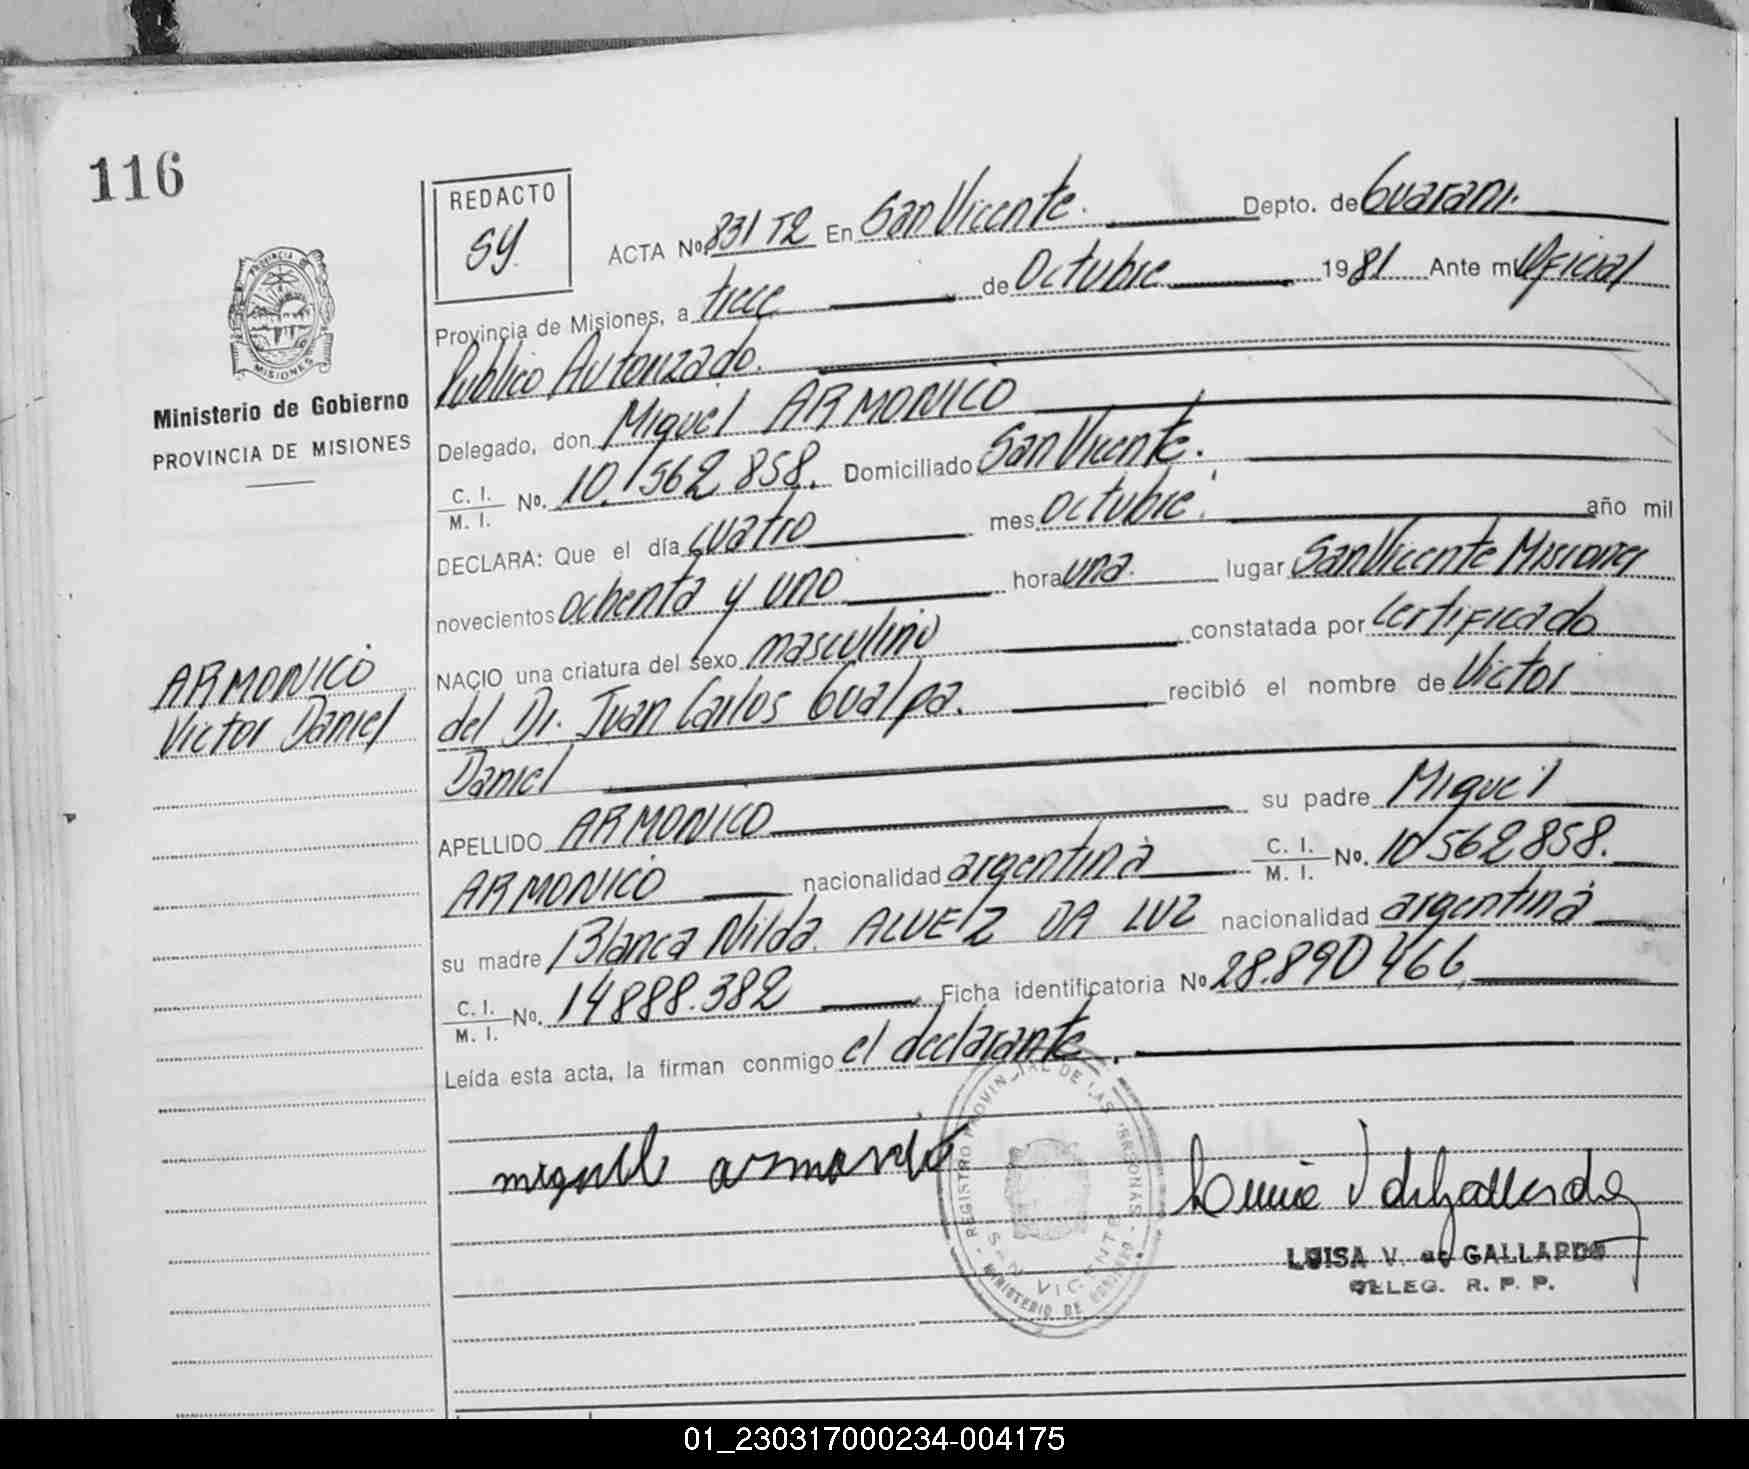 116
REDACTO
SY.
ACTA No. 831 T2 En San Vicente. Depto. de Guarani.
Provincia de Misiones, a trece de Octubre 1981 Ante mi Oficial
Publico Autorizado.
PROVINCIA
MISIONES
Ministerio de Gobierno
PROVINCIA DE MISIONES
Delegado, don Miguel ARMONICO
C. I. / M. I. No. 10.562.858. Domiciliado San Vicente.
DECLARA: Que el día cuatro mes octubre. año mil
novecientos ochenta y uno hora una. lugar San Vicente Misiones
NACIO una criatura del sexo masculino constatada por certificado
ARMONICO
Victor Daniel
del Dr. Juan Carlos Gualpa. recibió el nombre de Victor
Daniel
APELLIDO ARMONICO su padre Miguel
ARMONICO nacionalidad argentina C. I. / M. I. No. 10.562.858.
su madre Blanca Nilda. ALVEZ DA LUZ nacionalidad argentina
C. I. / M. I. No. 14888.382 Ficha identificatoria No 28.890 466,
Leída esta acta, la firman conmigo el declarante.
REGISTRO PROVINCIAL DE LAS PERSONAS
SAN VICENTE
MINISTERIO DE GOBIERNO
LUISA V. de GALLARDO
DELEG. R. P. P.
01_230317000234-004175